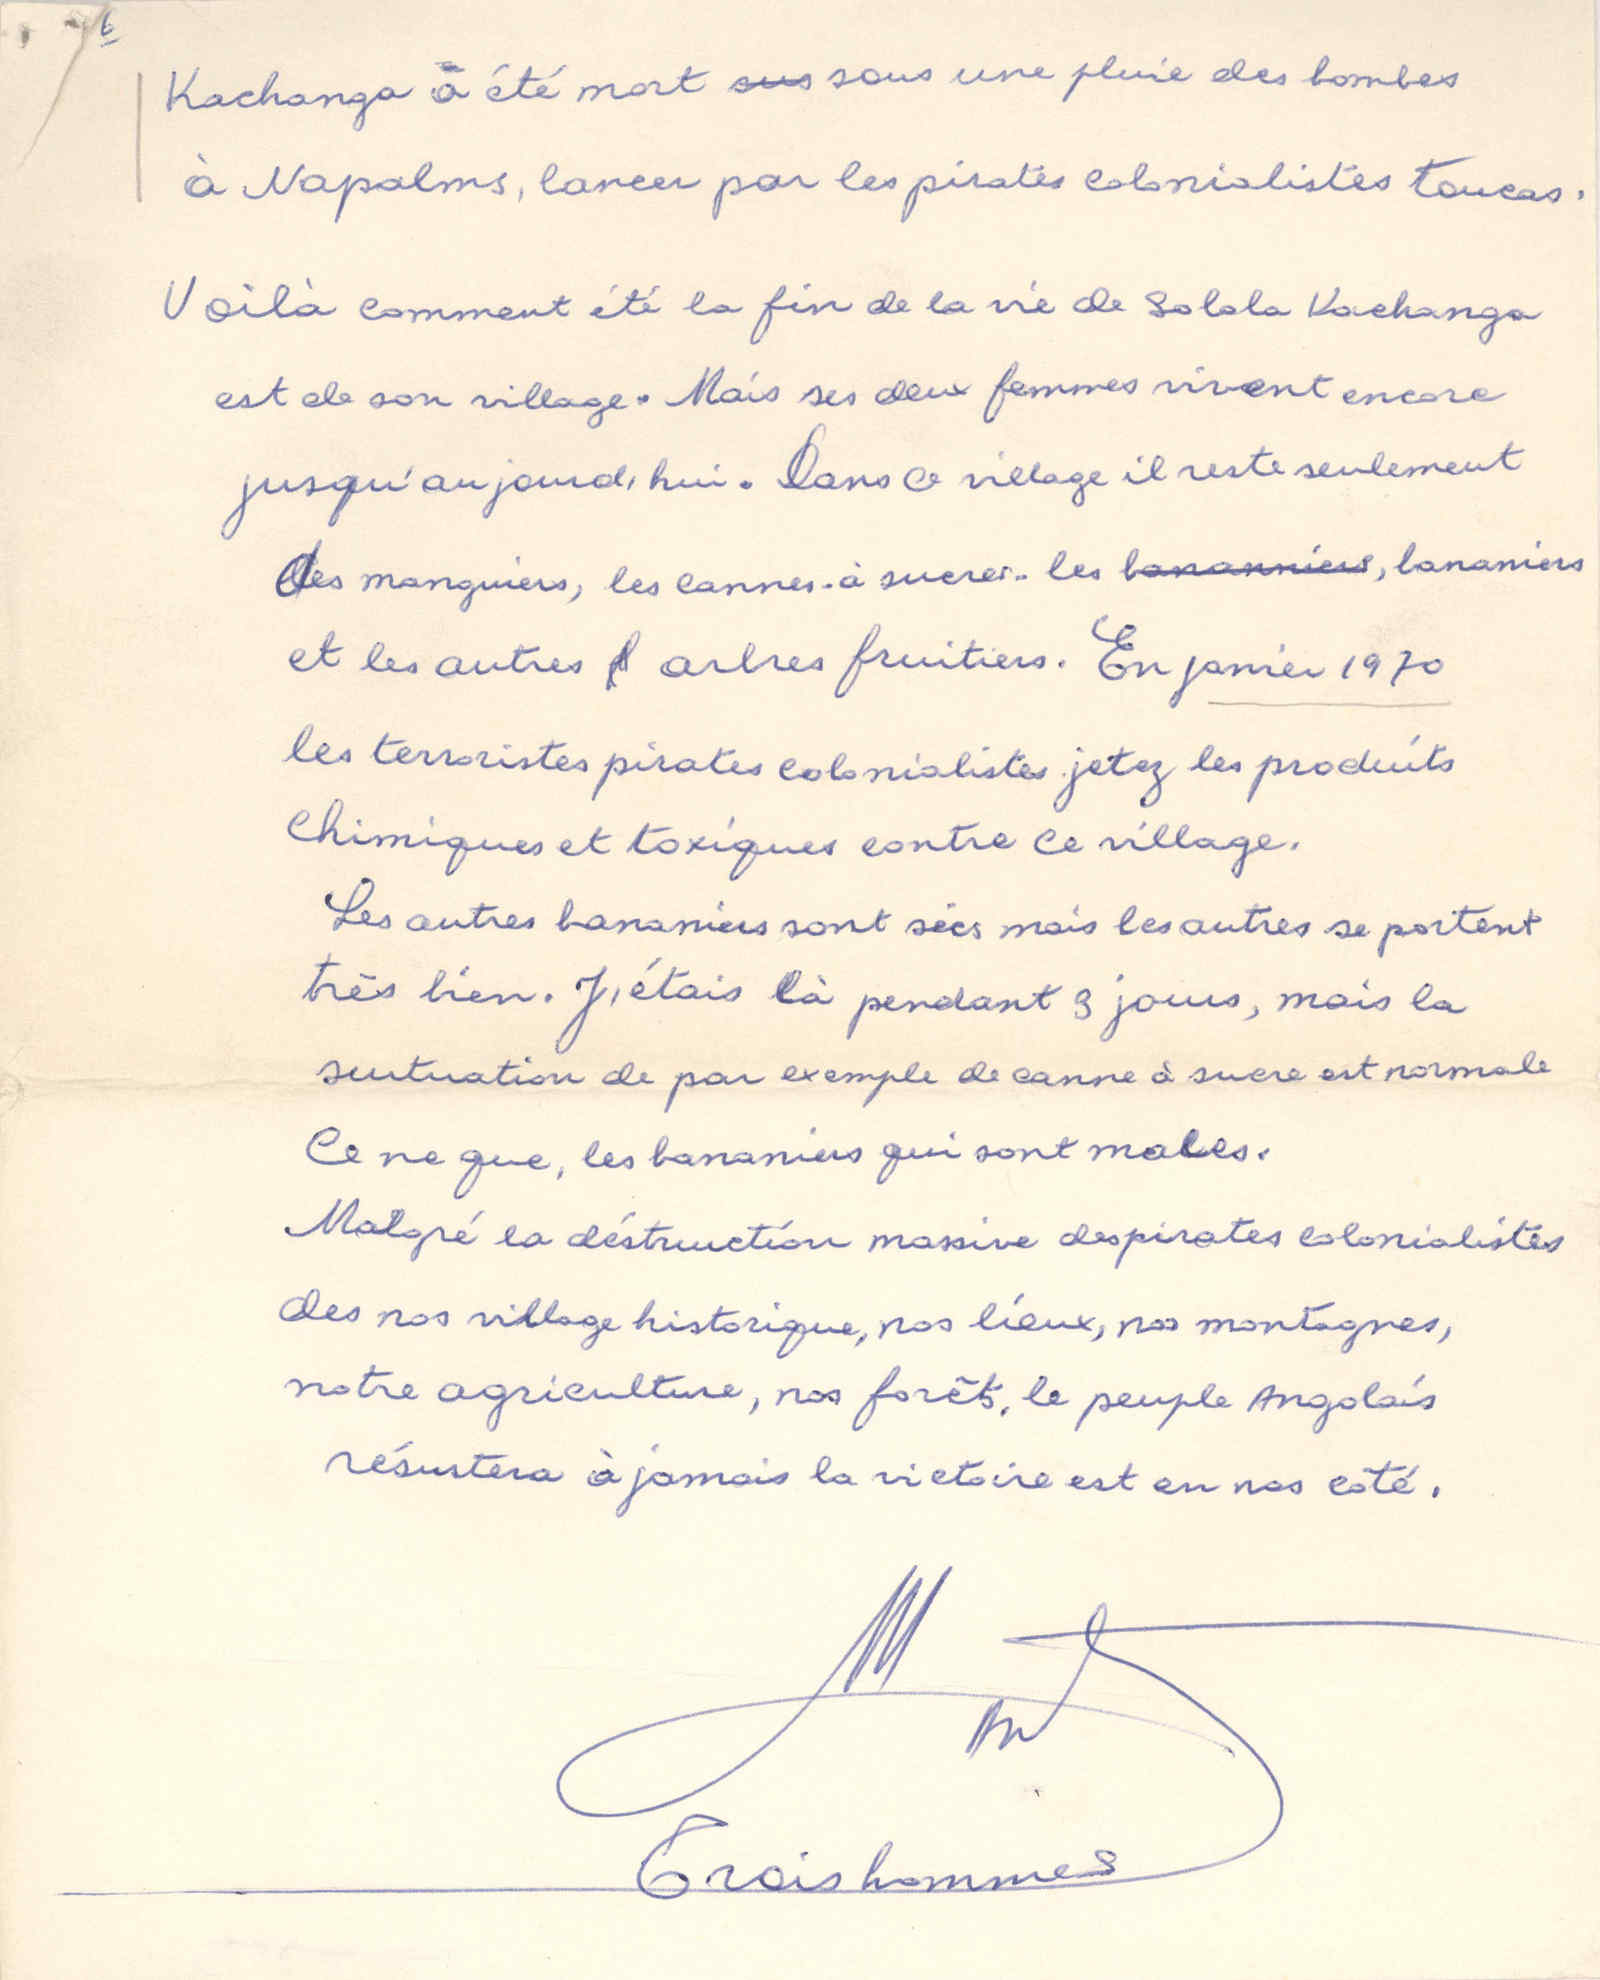 6
Kachanga à été mort sus sous une pluie des bombes
à Napalms, lancer par les pirates colonialistes toucas.
Voilà comment été la fin de la vie de Solola Kachanga
est de son village. Mais ses deux femmes vivent encore
jusqu'aujourd'hui. Dans ce village il reste seulement
des manguiers, les cannes-à sucrer- les bananniers, bananiers
et les autres arbres fruitiers. En janier 1970
les terroristes pirates colonialistes jetez les produits
chimiques et toxiques contre ce village.
Les autres bananiers sont sècs mais les autres se portent
très bien. J'étais là pendant 3 jours, mais la
suituation de par exemple de canne à sucre est normale
Ce ne que, les bananiers qui sont males.
Malgré la déstruction massive des pirates colonialistes
des nos village historique, nos lieux, nos montagnes,
notre agriculture, nos forêts, le peuple Angolais
résistera à jamais la victoire est en nos coté.
Trois hommes